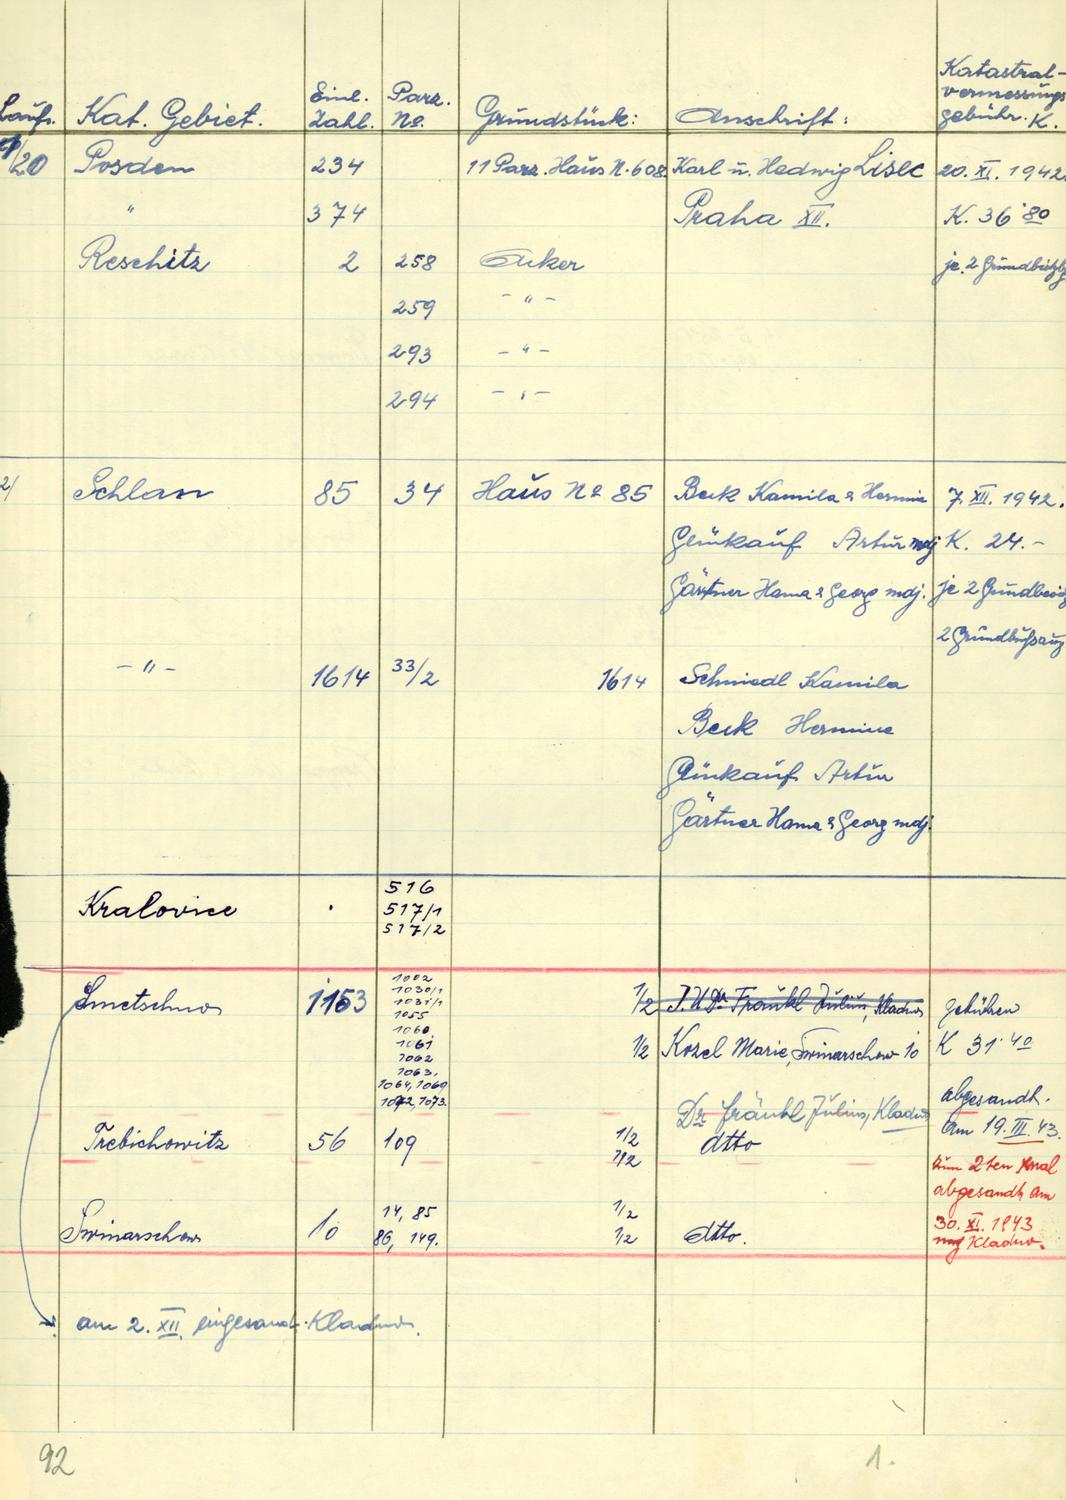 Laufs. Kat. Gebiet. Einl. Zahl. Parz. No. Grundstück: Anschrift: Katastral-vermessungs gebühr. K.
1/20 Posden 234 11 Parz. Haus N. 608. Karl u. Hedwig Lisec 20. XI. 1942.
" 374 Praha XII. K. 36·80
Reschitz 2 258 Acker je 2
259 - " -
293 - " -
294 - " -
2/ Schlan 85 34 Haus No 85 Beck Kamila & Hermine 7. XII. 1942.
Glückauf Artur mdj K. 24.-
Gärtner Hama & Georg mdj. je 2
2
- " - 1614 33/2 1614 Schmiedl Kamila
Beck Hermine
Glückauf Artur
Gärtner Hama & Georg mdj.
Kralovice . 516
517/1
517/2
Smetschno 1153 1002 1/2 J.U.Dr. Fränkl Julius, Kladno gebühren
1030/1
1031/1
1055
1060. 1/2 Kozel Marie, Swinarschow 10 K 31·40
1061
1062
1063.
1064, 1069 abgesandt.
1072, 1073. Dr. Fränkl Julius, Kladno am 19. III. 43.
Trebichowitz 56 109 1/2 dtto
1/2 zum 2ten mal
abgesandt am
Swinarschow 10 14, 85 1/2 30. XI. 1943
86, 149. 1/2 dtto. nach Kladno.
am 2. XII. eingesandt Kladno.
92 1.